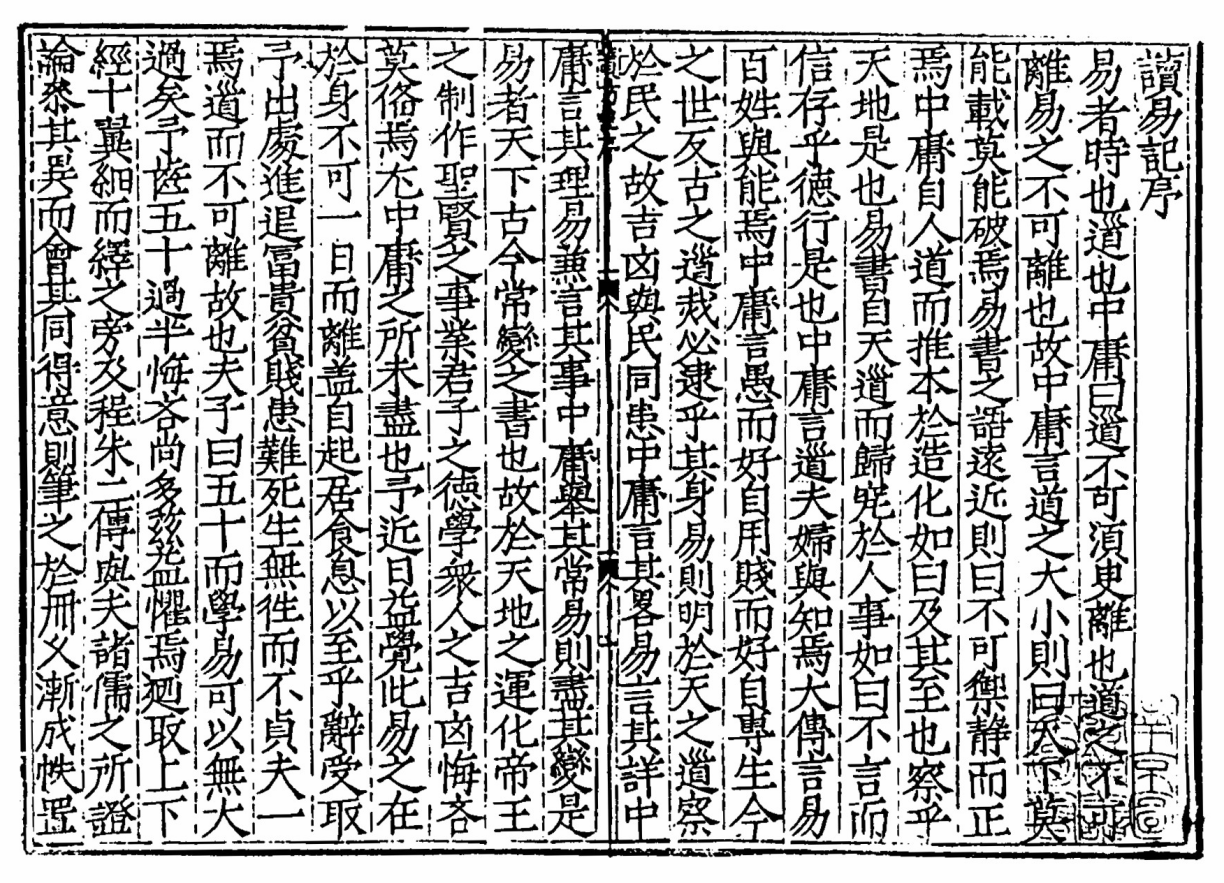 讀易記序
易者時也道也中庸曰道不可須臾離也道之不可
離易之不可離也故中庸言道之大小則曰天下莫
能載莫能破焉易書之語遠近則曰不可禦静而正
焉中庸自人道而推本於造化如曰及其至也察乎
天地是也易書自天道而歸宿於人事如曰不言而
信存乎德行是也中庸言道夫婦與知焉大傳言易
百姓與能焉中庸言愚而好自用賤而好自專生今
之世反古之道烖必逮乎其身易則明於天之道察
於民之故吉凶與民同患中庸言其畧易言其詳中
庸言其理易兼言其事中庸舉其常易則盡其變是
易者天下古今常變之書也故於天地之運化帝王
之制作聖賢之事業君子之德學衆人之吉凶悔吝
莫俻焉尤中庸之所未盡也予近日益覺此易之在
於身不可一日而離盖自起居食息以至乎辭受取
予出處進退富貴貧賤患難死生無徃而不貞夫一
焉道而不可離故也夫子曰五十而學易可以無大
過矣予齒五十過半悔吝尚多兹益懼焉廼取上下
經十翼細而繹之旁及程朱二傳與夫諸儒之所證
論叅其異而會其同得意則筆之於冊乆漸成帙置